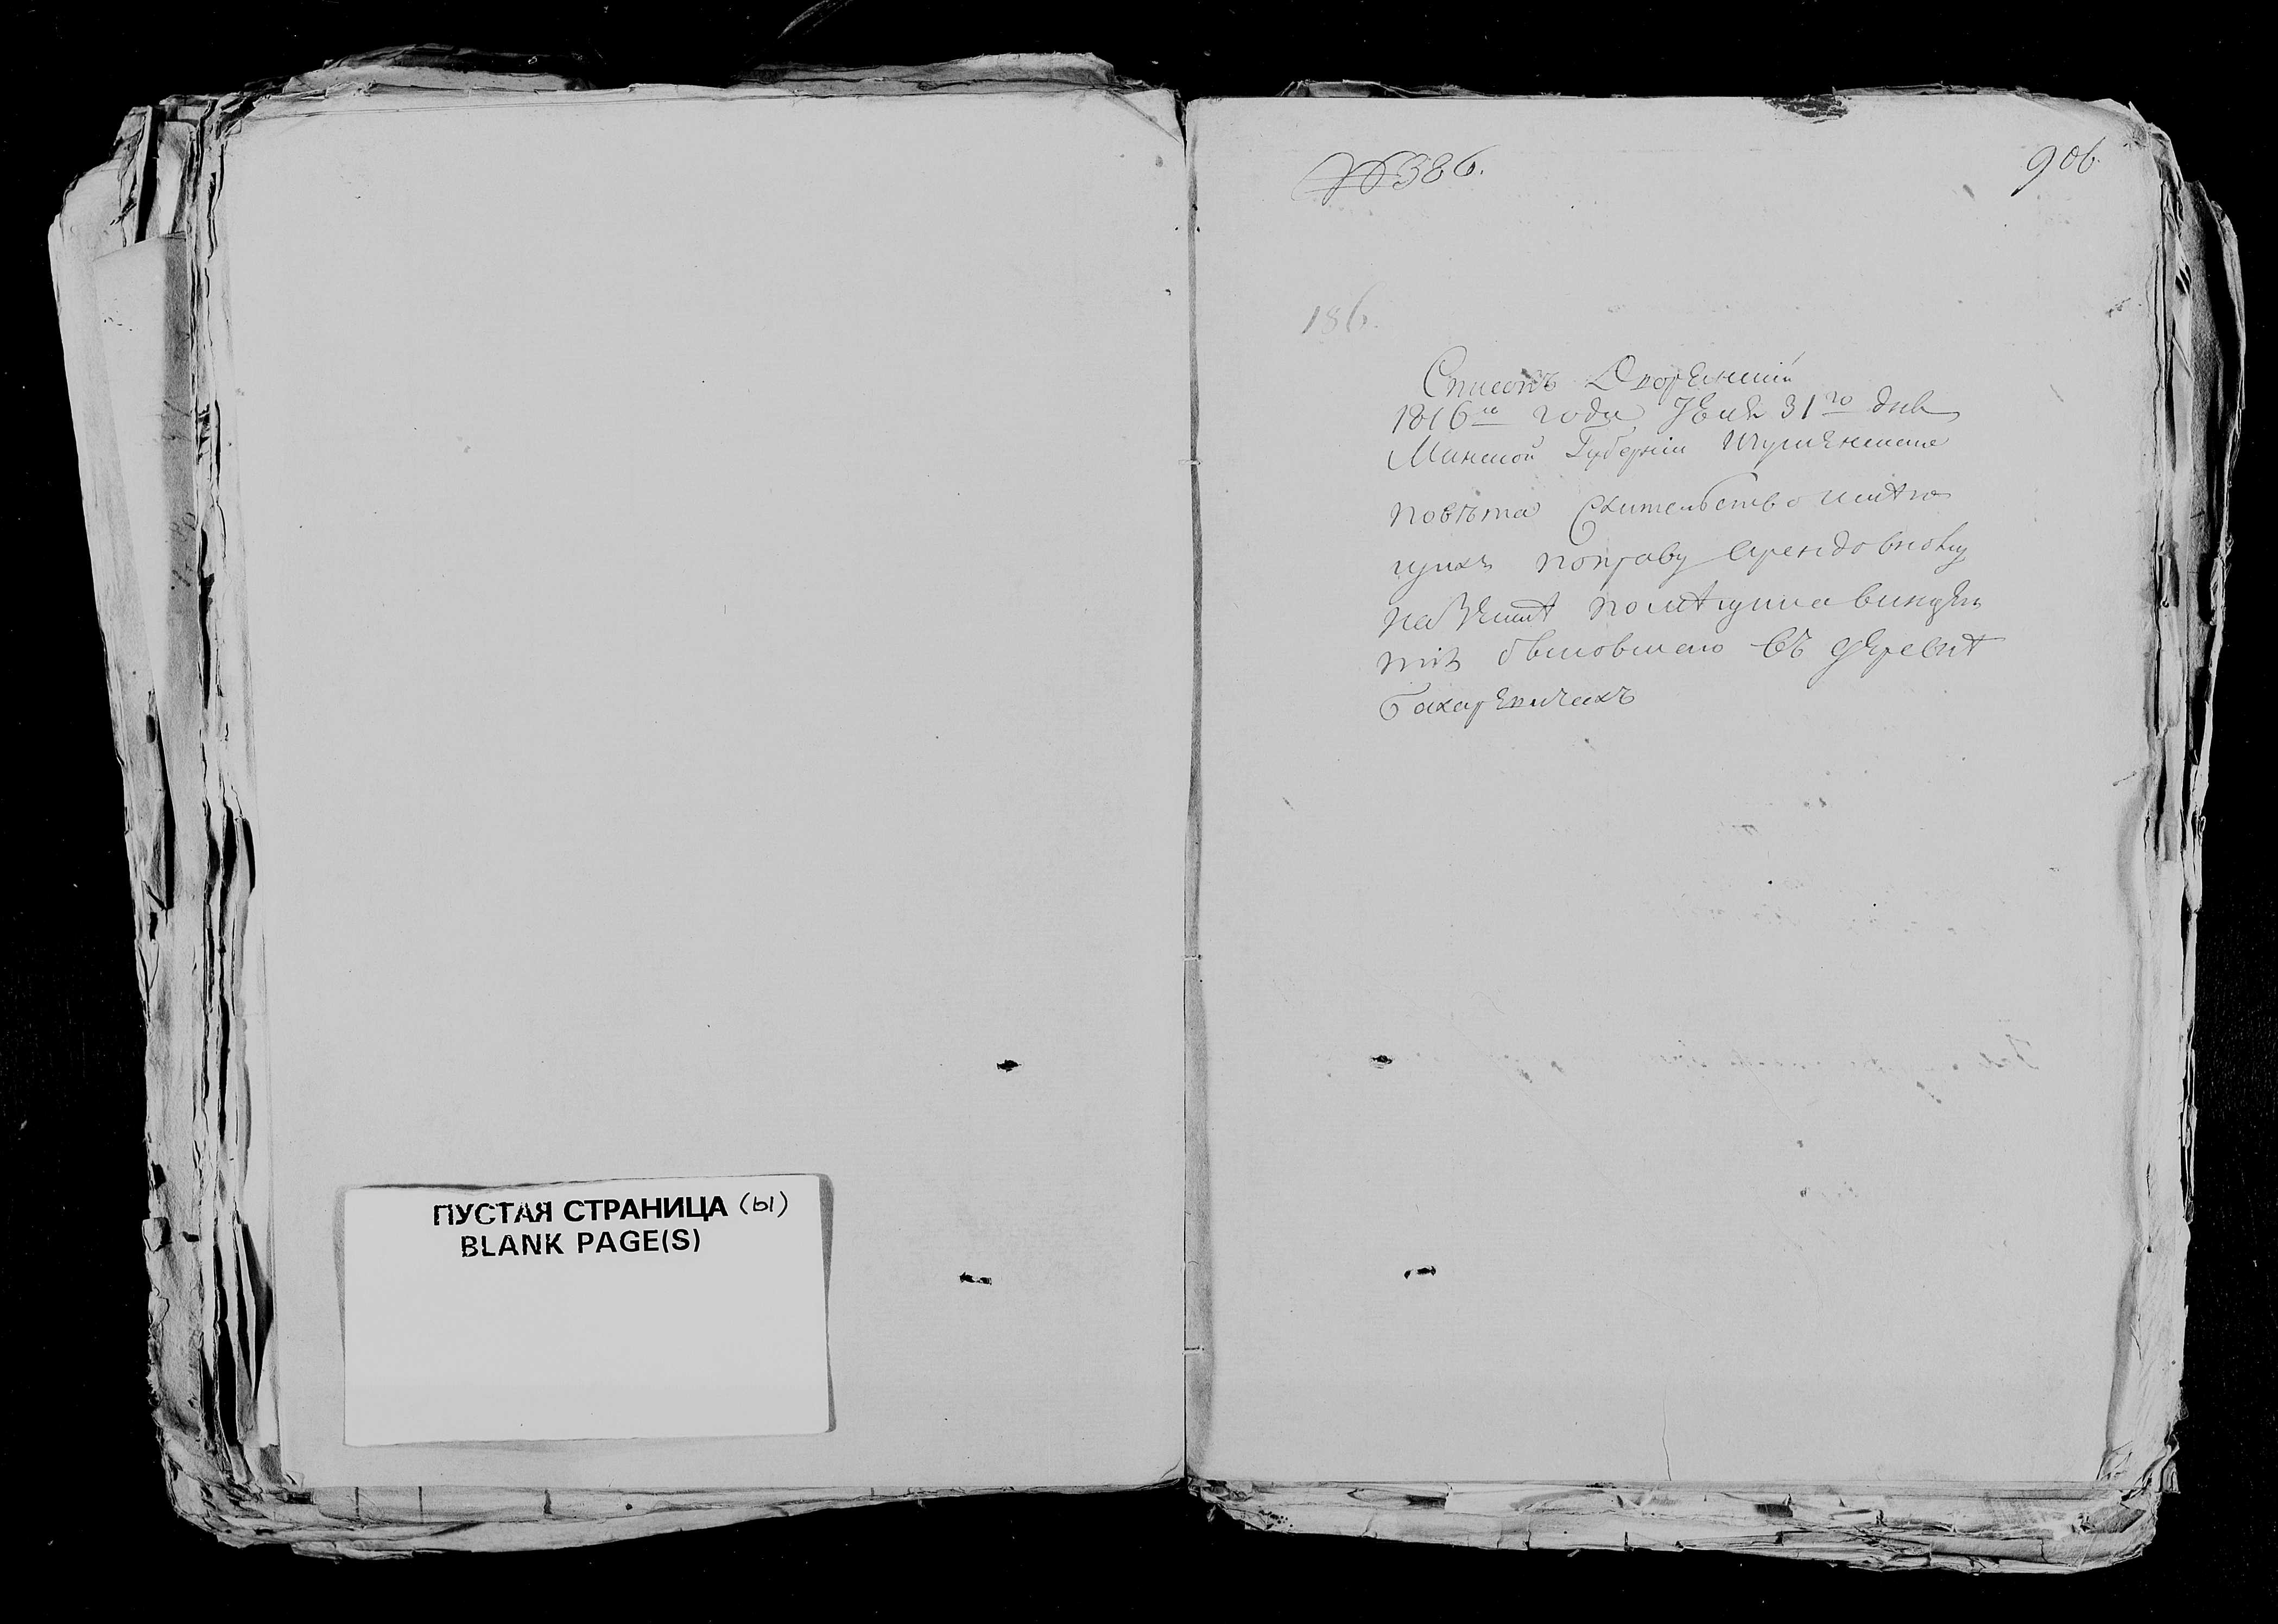 ПУСТАЯ СТРАНИЦА (ы)
BLANK PAGE(S)
№ 386.
906
186.
Списокъ Дворенский
1816го года 31го дня
Минской Губернии Игуменскаго
повѣта Сжительство имѣю
щихъ поправу арендовному
на Земле помѣщика
въ деревнѣ
Бахаревичахъ